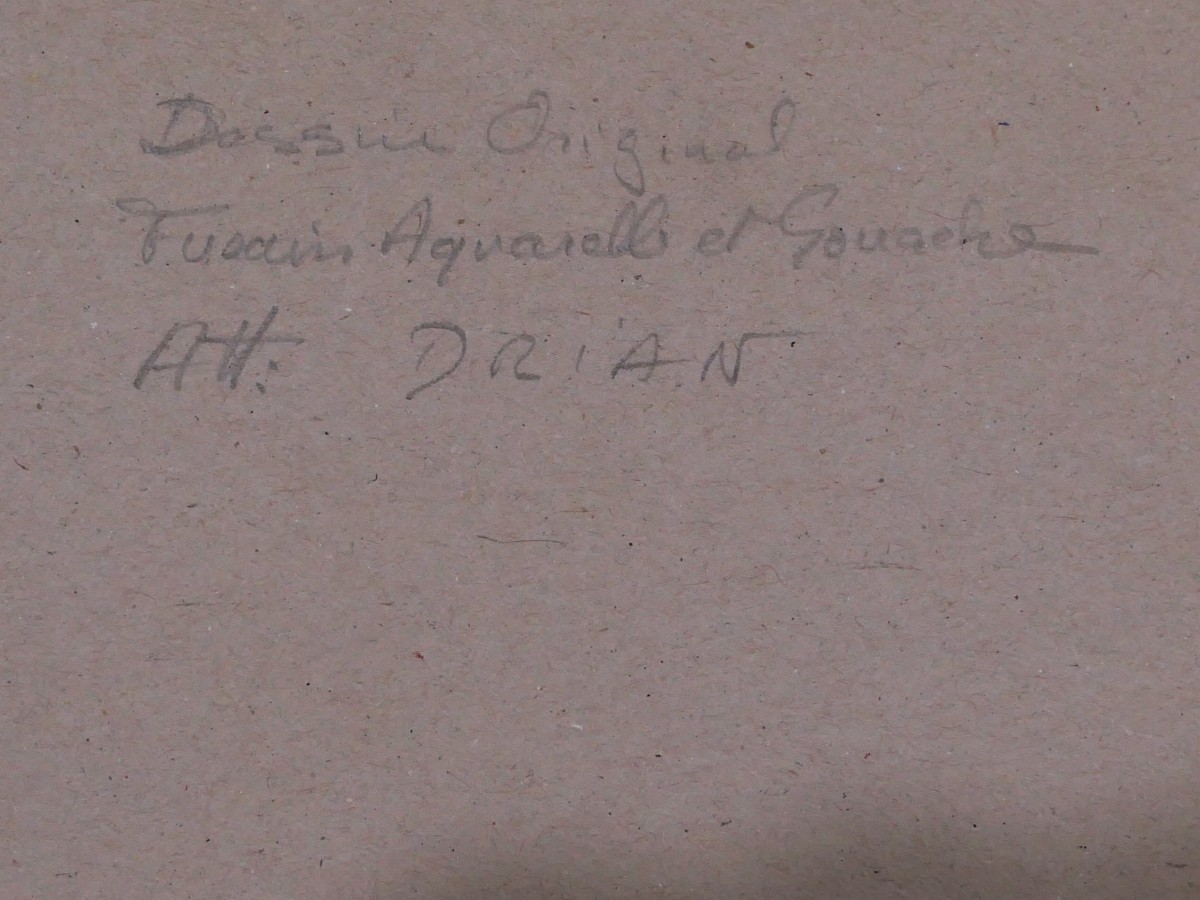 Dessin Original
Fusain Aquarelle et Gouache
Att: DRIAN